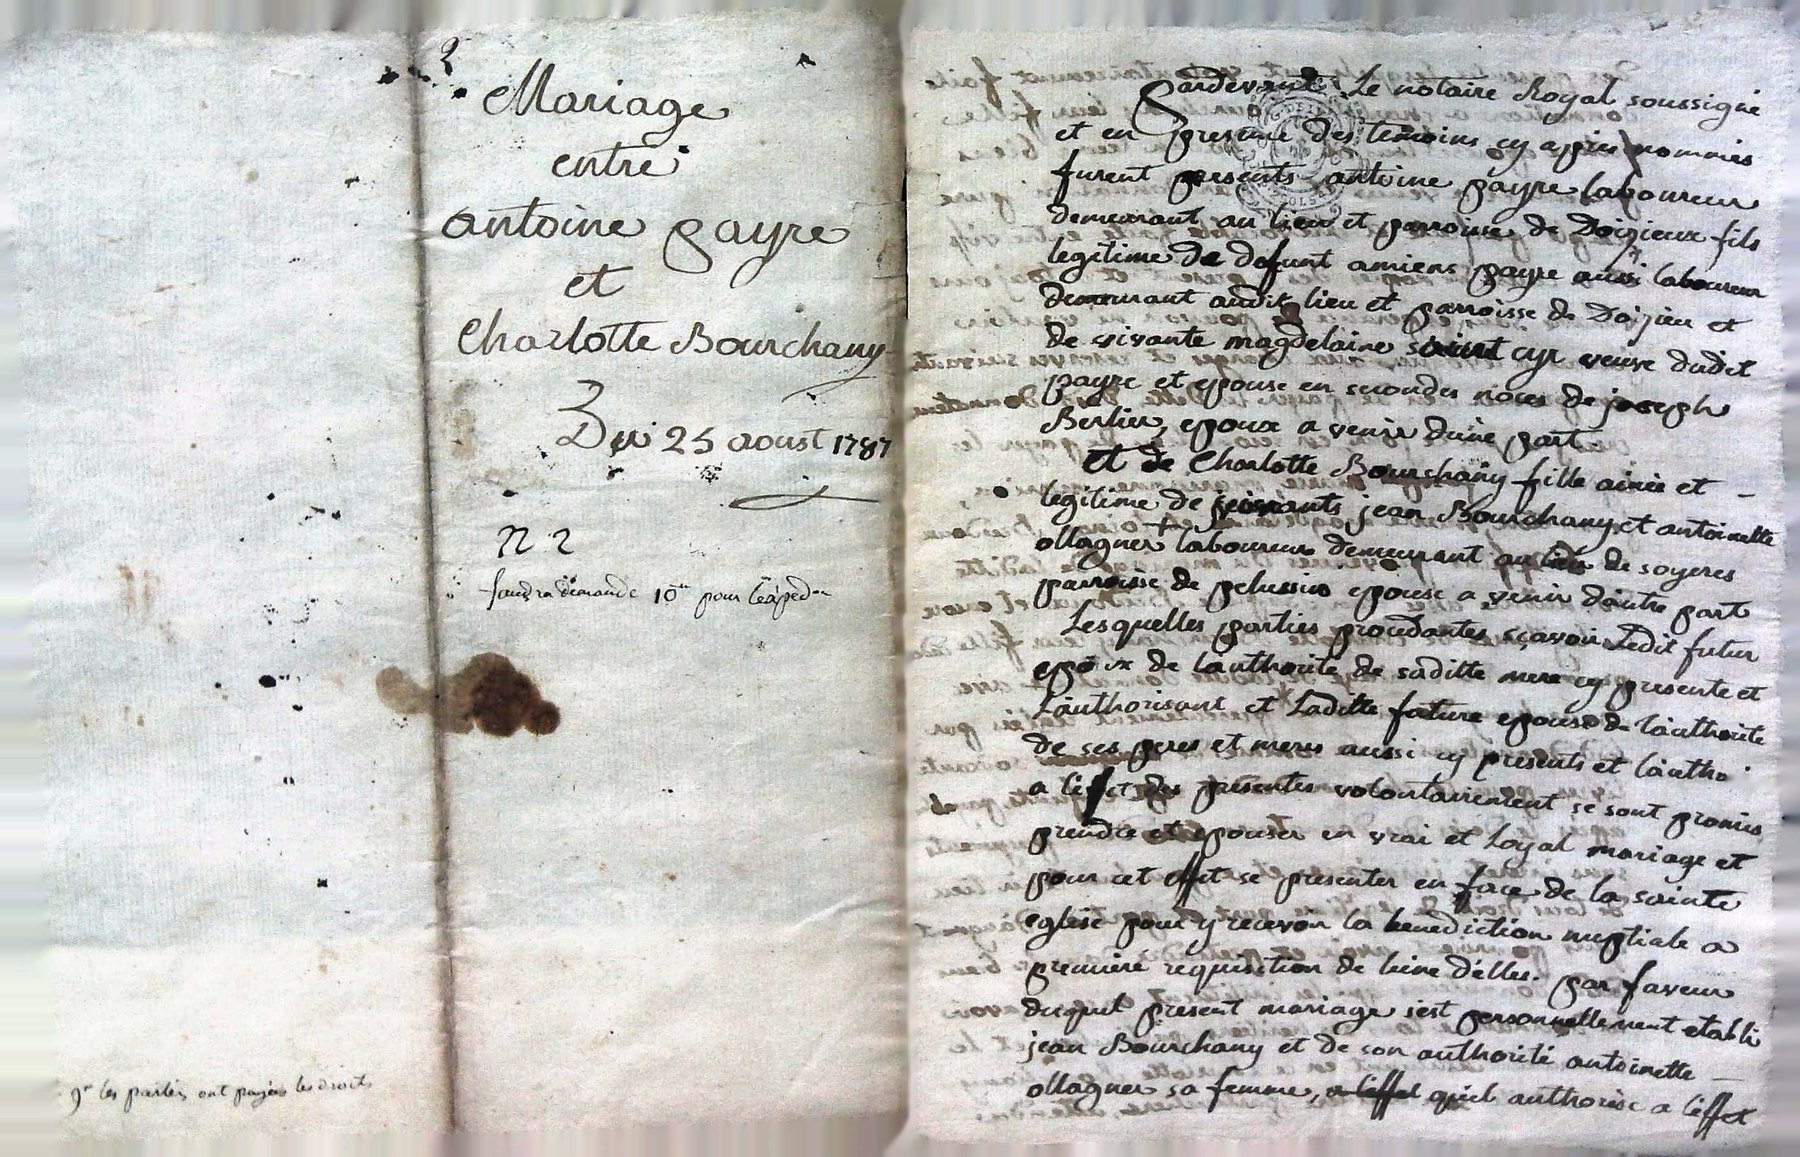 2
Mariage
entre
antoine payre
et
Charlotte Bourchany
Du 25 aoust 1787
N 2
faudra demande 10ᵗᵗ pour l'expedᵒⁿ
les parties ont payées les droits
Pardevant Le notaire Royal soussigné
et en presence des temoins cy apres nommés
furent presents antoine payre laboureur
demeurant au lieu et parroisse de Doizieux fils
legitime de defunt amiens payre aussi laboureur
demeurant audit lieu et parroisse de Doizieu et
de vivante magdelaine saint cyr veuve dudit
payre et epouse en secondes noces de joseph
Berlier, epoux a venir dune part
et de Charlotte Bourchany fille ainée et
legitime de jean Bourchany et antoinette
ollagner laboureur demeurant au lieu de soyeres
parroisse de pelussin epouse a venir d'autre part
Lesquelles parties procedantes sçavoir Ledit futur
epoux de lauthorité de saditte mere cy presente et
L'authorisant et Laditte future epouse de lauthorité
de ses peres et meres aussi cy presents et l'autho
a l'effet des presentes volontairement se sont promis
prendre et epouser en vrai et Loyal mariage et
pour cet effet se presenter en face de la sainte
eglise pour y recevoir la benediction nuptiale a
premiere requisition de lune d'elles. par faveur
duquel present mariage s'est personnellement etabli
jean Bourchany et de son authorité antoinette
ollagner sa femme, a l'effet quil authorise a l'effet